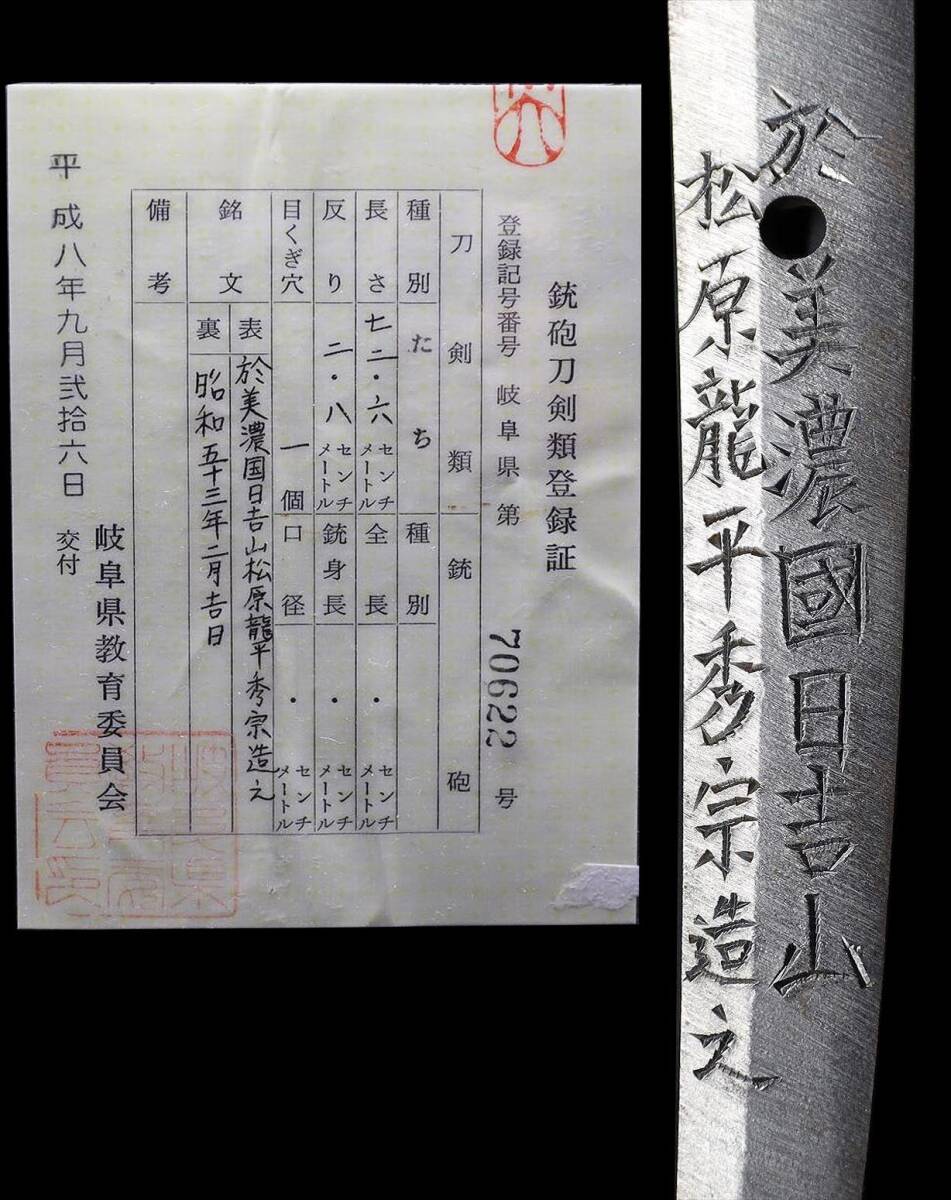 銃砲刀剣類登録証
登録記号番号 岐阜県 第 70622 号
刀剣類 銃砲
種別 たち 種別
長さ 七二・六 センチメートル 全長 ・ センチメートル
反り 二・八 センチメートル 銃身長 ・ センチメートル
目くぎ穴 一個 口径 ・ センチメートル
銘文 表 於美濃国日吉山松原龍平秀宗造之
裏 昭和五十三年二月吉日
備考
岐阜県教育委員会
平成八年九月弐拾六日 交付
於美濃國日吉山
松原龍平秀宗造之